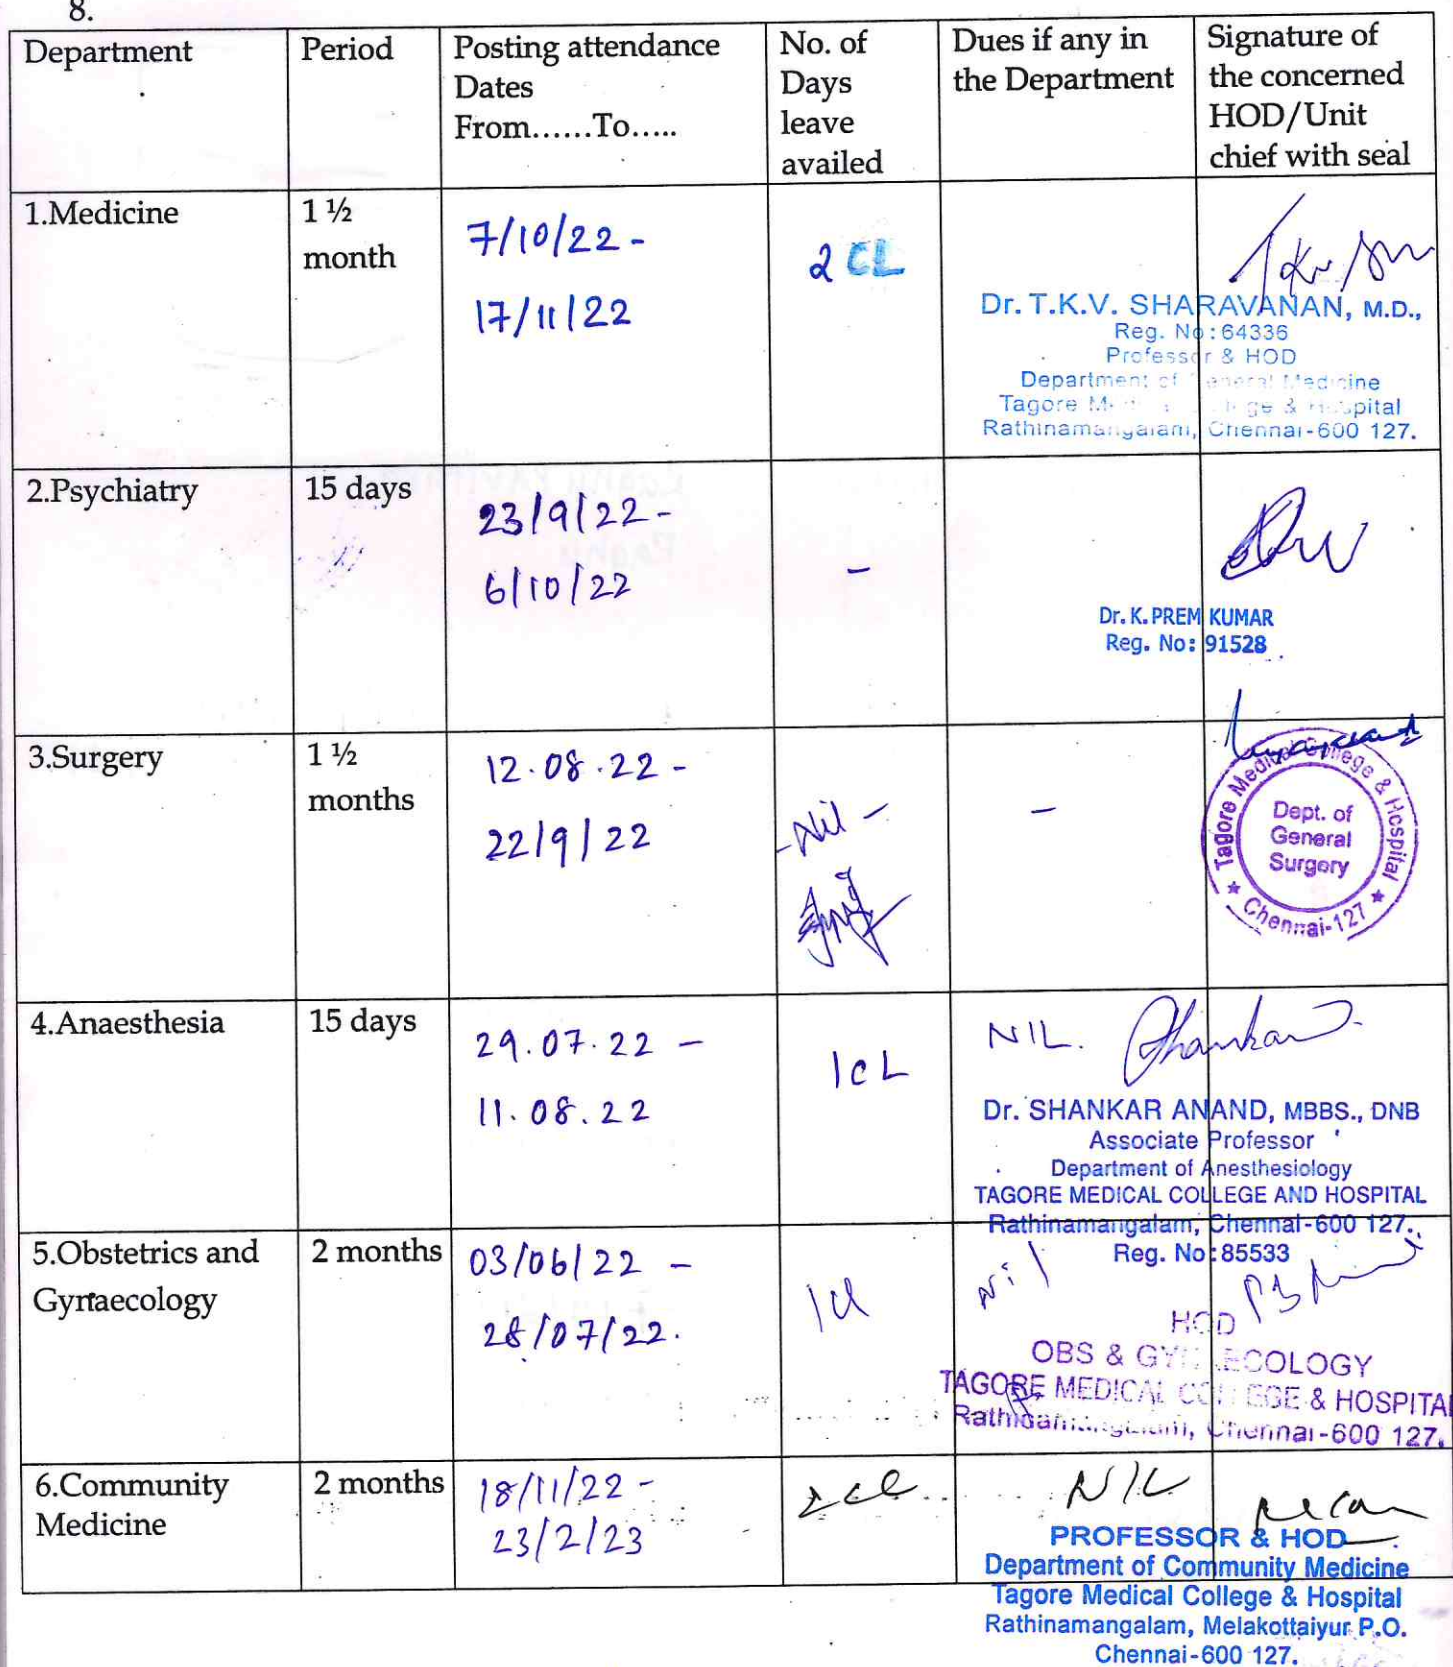 8.
Department
Period
Posting attendance
Dates
From......To.....
No. of
Days
leave
availed
Dues if any in
the Department
Signature of
the concerned
HOD/Unit
chief with seal
1.Medicine
1 ½
month
7/10/22 -
17/11/22
2 CL
Dr. T.K.V. SHARAVANAN, M.D.,
Reg. No: 64336
Professor & HOD
Department of General Medicine
Tagore Medical College & Hospital
Rathinamangalam, Chennai-600 127.
2.Psychiatry
15 days
23/9/22 -
6/10/22
-
Dr. K. PREM KUMAR
Reg. No: 91528
3.Surgery
1 ½
months
12.08.22 -
22/9/22
- Nil -
-
Tagore Medical College & Hospital
Dept. of
General
Surgery
★ Chennai-127 ★
4.Anaesthesia
15 days
29.07.22 -
11.08.22
1CL
NIL.
Dr. SHANKAR ANAND, MBBS., DNB
Associate Professor
Department of Anesthesiology
TAGORE MEDICAL COLLEGE AND HOSPITAL
Rathinamangalam, Chennai-600 127.
Reg. No:85533
5.Obstetrics and
Gynaecology
2 months
03/06/22 -
28/07/22.
1Cl
Nil
HOD
OBS & GYNAECOLOGY
TAGORE MEDICAL COLLEGE & HOSPITAL
Rathinamangalam, Chennai-600 127.
6.Community
Medicine
2 months
18/11/22 -
23/2/23
2cl
NIL
PROFESSOR & HOD
Department of Community Medicine
Tagore Medical College & Hospital
Rathinamangalam, Melakottaiyur P.O.
Chennai-600 127.